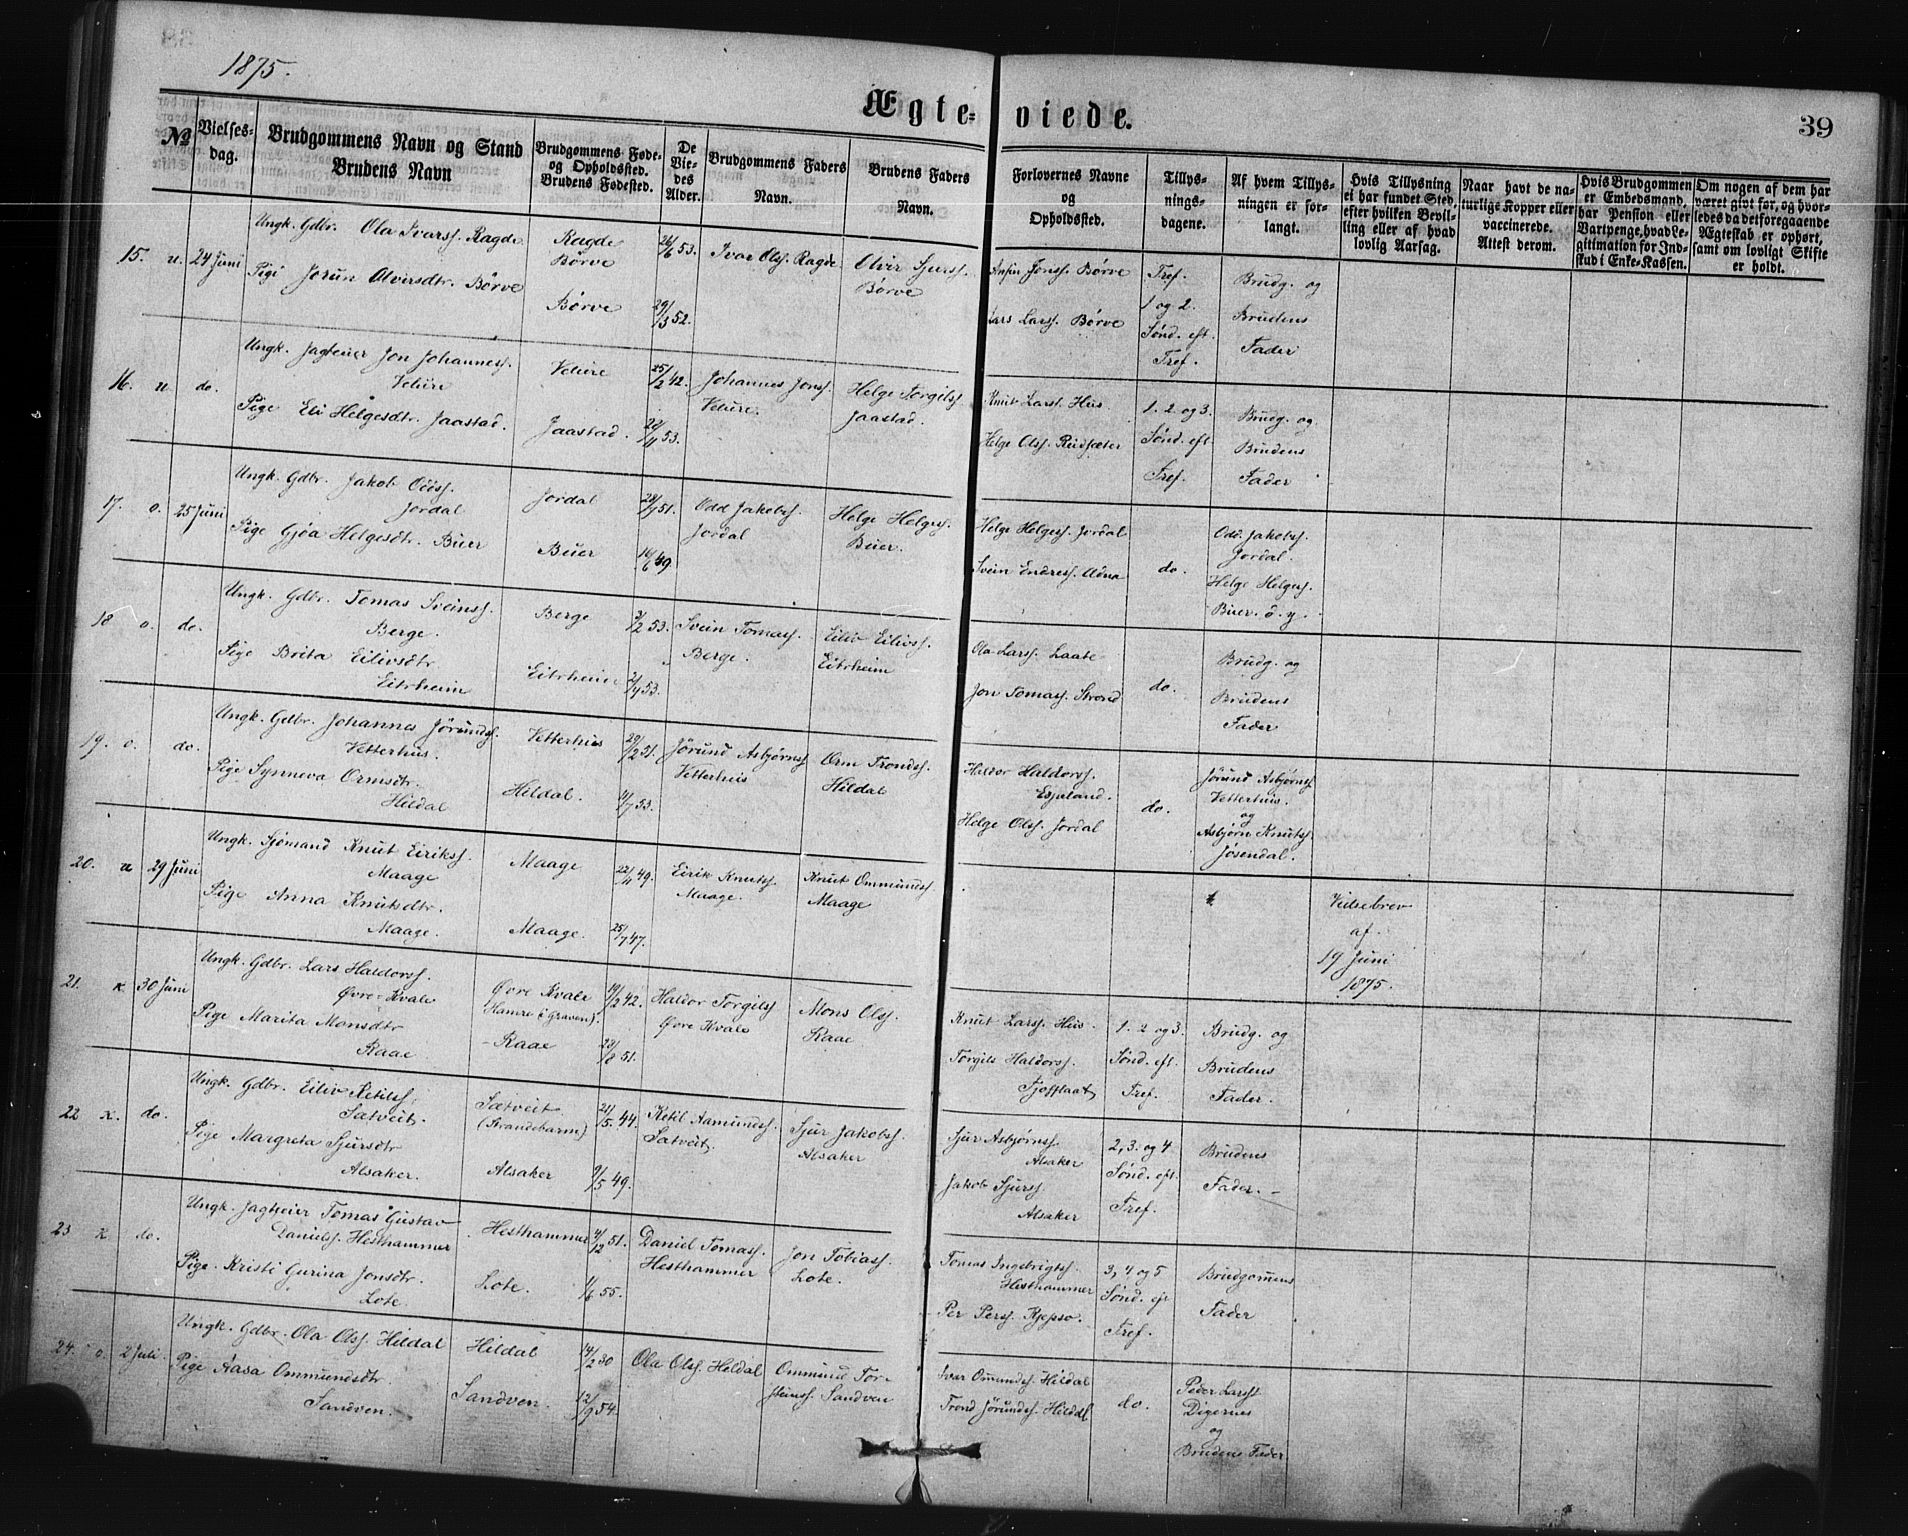 1875.
Ægteviede.
39
№
Vielsesdag.
Brudgommens Navn og Stand
Brudens Navn
Brudgommens Føde- og Opholdssted.
Brudens Fødested.
De Viedes Alder.
Brudgommens Faders Navn.
Brudens Faders Navn.
Forlovernes Navne og Opholdssted.
Tillysningsdagene.
Af hvem Tillysningen er forlangt.
Hvis Tillysning ei har fundet Sted, efter hvilken Bevilling eller af hvad lovlig Aarsag.
Naar havt de naturlige Kopper eller vaccinerede. Attest derom.
Hvis Brudgommen er Embedsmand, har Pension eller Vartpenge, hvad Legitimation for Indskud i Enke-Kassen.
Om nogen af dem har været givt før, og hvorledes da det foregaaende Ægteskab er ophørt, samt om lovligt Skifte er holdt.
15. u. 24 Juni
Ungk. Gdbr. Ola Ivarss. Ragde
Pige Jorun Olvirsdtr. Børve
Ragde
Børve
Børve
26/6 53.
29/3 52.
Ivar Olss. Ragde
Olvir Sjurss.
Børve
Anfin Jonss. Børve
Lars Larss. Børve
Tref.
1 og 2.
Sønd. eft.
Tref.
Brudg. og
Brudens
Fader
16. u do.
Ungk. Jagteier Jon Johanness.
Velure
Pige Eli Helgesdtr. Jaastad.
Velure
Jaastad.
25/2 42.
28/11 53.
Johannes Jonss.
Velure.
Helge Torgilss.
Jaastad.
Knut Larss. Hus.
Helge Olss. Rudsæter
1. 2 og 3.
Sønd. eft.
Tref.
Brudg. og
Brudens
Fader
17. o. 25 Juni
Ungk. Gdbr. Jakob Odds.
Jordal
Pige Gjøa Helgesdtr. Buer
Jordal
Buer
28/1 51.
16/6 49.
Odd Jakobs.
Jordal
Helge Helges.
Buer.
Helge Helgess. Jordal
Svein Endress. Adna
do.
Odd. Jakobs.
Jordal.
Helge Helges.
Buer. d. y.
18 o. do.
Ungk. Gdbr. Tomas Sveinss.
Berge.
Pige Brita Eilivsdtr.
Eitrheim
Berge
Eitrheim
3/2 53.
Svein Tomass.
Berge.
Eiliv Eilivss.
Eitrheim
Ola Larss. Laate
Jon Tomass. Strond
do.
Brudg. og
Brudens
Fader
19. o. do.
Ungk. Gdbr. Johannes Jørunds.
Vetterhus.
Pige Synneva Ormsdtr.
Hildal
Vetterhus
Hildal.
29/2 31.
4/7 53.
Jørund Asbjørns.
Vetterhus
Orm Tronds.
Hildal
Haldor Haldorss.
Espeland.
Helge Olss. Jordal
do.
Jørund Asbjørns.
Vetterhus.
og
Asbjørn Knuts.
Jøsendal.
20. u 29 Juni
Ungk. Sjømand Knut Eirikss.
Maage
Pige Anna Knutsdtr.
Maage.
Maage
Maage.
22/11 49.
25/7 47.
Eirik Knutss.
Maage.
Knut Ommunds.
Maage
Vielsebrev
af.
19 Juni
1875.
21. k 30 Juni
Ungk. Gdbr. Lars Haldorss.
Øvre-Kvale
Pige Marita Monsdtr
Raae
Øvre Kvale
Hamre (i Graven).
Raae
19/2 42.
28/8 51.
Haldor Torgilss
Øvre Kvale
Mons Olss.
Raae
Knut Larss. Hus.
Torgils Haldorss.
Tjoflaat
1. 2 og 3.
Sønd. eft.
Tref.
Brudg. og
Brudens
Fader.
22 k. do.
Ungk. Gdbr. Eiliv Ketilss.
Sætveit.
Pige Margreta Sjursdtr
Alsaker.
Sætveit
(Strandebarm)
Alsaker
21/5 44.
9/5 49.
Ketil Aamundss.
Sætveit.
Sjur Jakobss.
Alsaker
Sjur Asbjørnss.
Alsaker
Jakob Sjurss.
Alsaker
2, 3. og 4
Sønd. eft.
Tref.
Brudens
Fader. -
23 k. do.
Ungk. Jagteier Tomas Gustav
Daniels. Hesthammer
Pige. Kristi Gurina Jonsdtr.
Lote.
Hesthammer
Lote.
4/12 51.
1/6 55.
Daniel Tomass.
Hesthammer
Jon Tobiass.
Lote.
Tomas Ingebrigts.
Hesthammer
Per Perss. Kjepso.
3, 4, og 5
Sønd. eft
Tref.
Brudgomens
Fader
24. o. 2 Juli.
Ungk. Gdbr. Ola Olss. Hildal
Pige Aasa Ommundsdtr.
Sandven.
Hildal
Sandven.
14/2 30
12/9 54.
Ola Olss. Hildal
Ommund Tor-
steinss. Sandven
Ivar Omundss. Hildal
Trond Jørundss. Hildal
do.
Peder Larss
Digernes
og
Brudens Fader